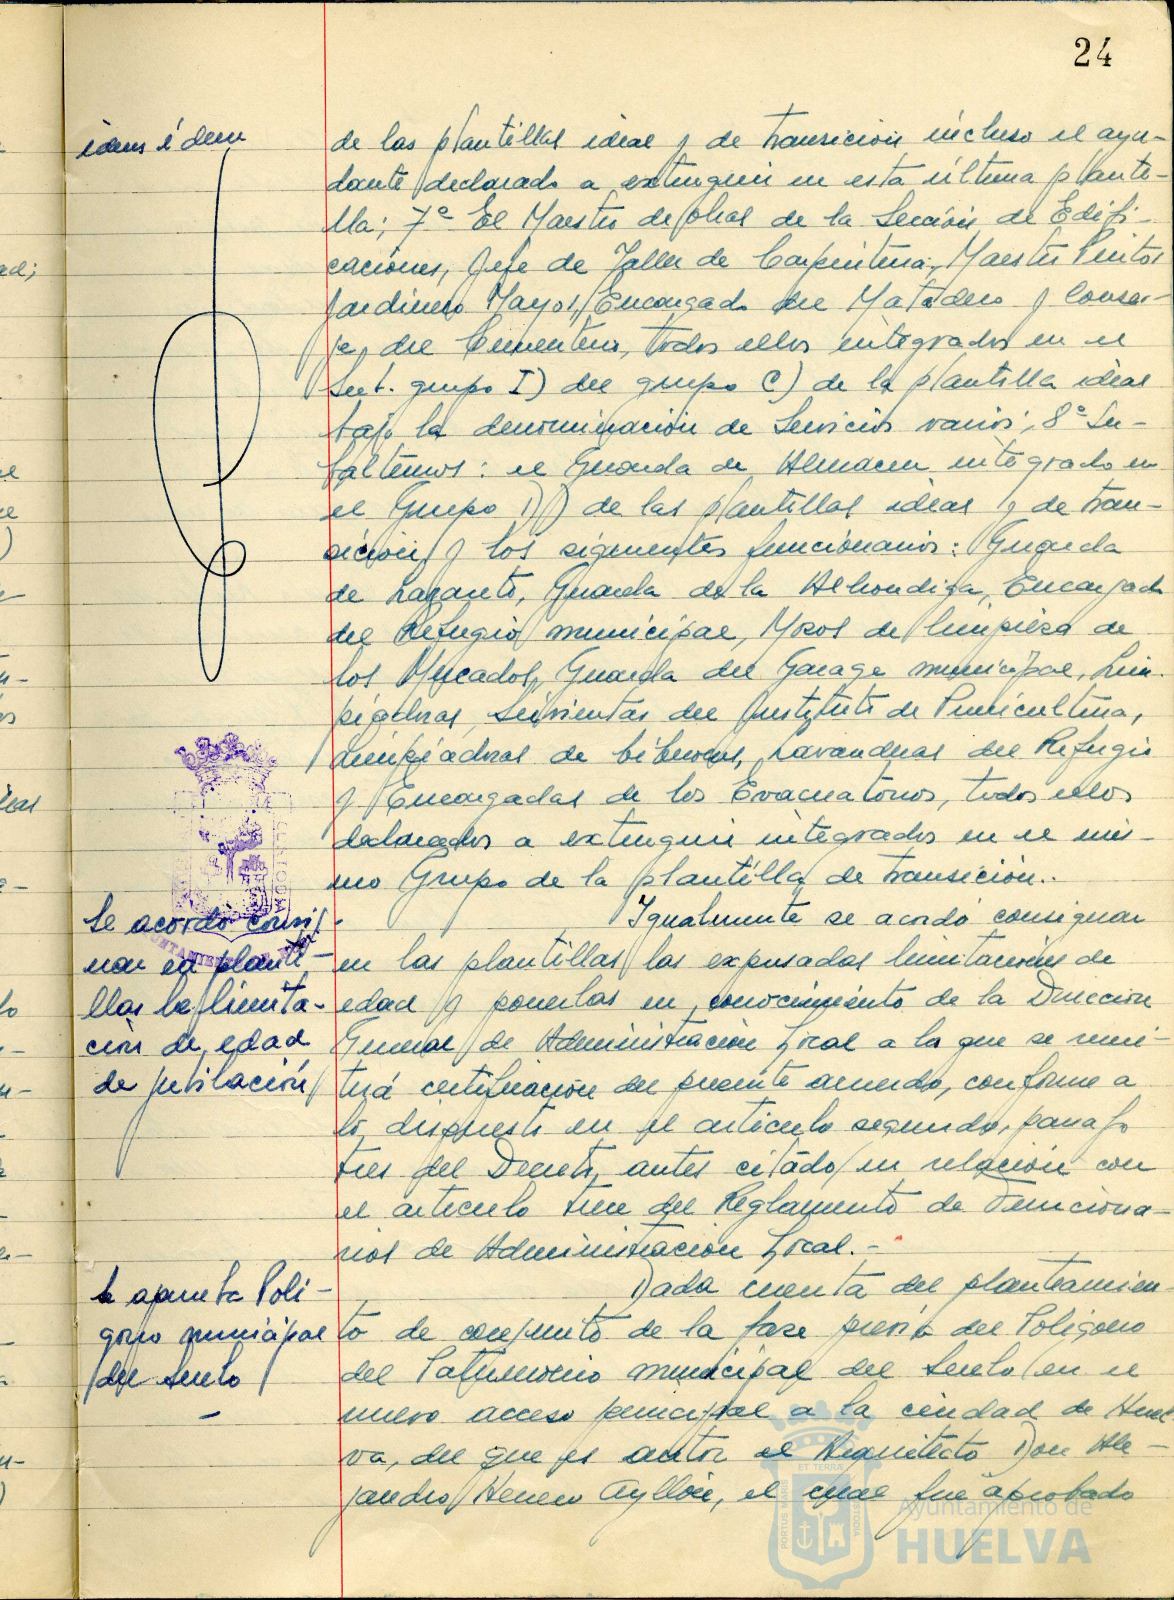 24
idem idem
de las plantillas ideal y de transición incluso el ayu-
dante declarado a extinguir en esta última planti-
lla; 7º El Maestro de obras de la Sección de Edifi-
caciones, Jefe de Taller de Carpintería, Maestro Pintor
Jardinero Mayor, Encargado del Matadero y Conser-
je del Cementerio, todos ellos integrados en el
Sub. grupo I) del grupo C) de la plantilla ideal
bajo la denominación de Servicios varios; 8º Su-
balternos: el Guarda de Almacen integrado en
el Grupo D) de las plantillas ideal y de tran-
sición y los siguientes funcionarios: Guarda
de Lazareto, Guarda de la Alhondiga, Encargado
del Refugio municipal, Mozos de limpieza de
los Mercados, Guarda del Garage municipal, Lim-
piadoras, Sirvientas del Instituto de Puericultura,
Limpiadoras de , Lavanderas del Refugio
y Encargadas de los Evacuatorios, todos ellos
declarados a extinguir integrados en el mis-
mo Grupo de la plantilla de transición.
Se acordó consig-
nar en planti-
llas la limita-
ción de edad
de jubilación
Igualmente se acordó consignar
en las plantillas las expresadas limitaciones de
edad y ponerlas en conocimiento de la Dirección
General de Administración Local a la que se remi-
tirá certificación del presente acuerdo, conforme a
lo dispuesto en el articulo segundo, parrafo
tres del Decreto antes citado en relación con
el articulo trece del Reglamento de Funciona-
rios de Administración Local.-
Se aprueba Poli-
gono municipal
del Suelo
Dada cuenta del planteamien-
to de conjunto de la fase previa del Poligono
del Patrimonio municipal del Suelo en el
nuevo acceso principal a la ciudad de Huel-
va, del que es autor el Arquitecto Don Ale-
jandro Herrero Ayllón, el cual fue aprobado
Ayuntamiento de
HUELVA